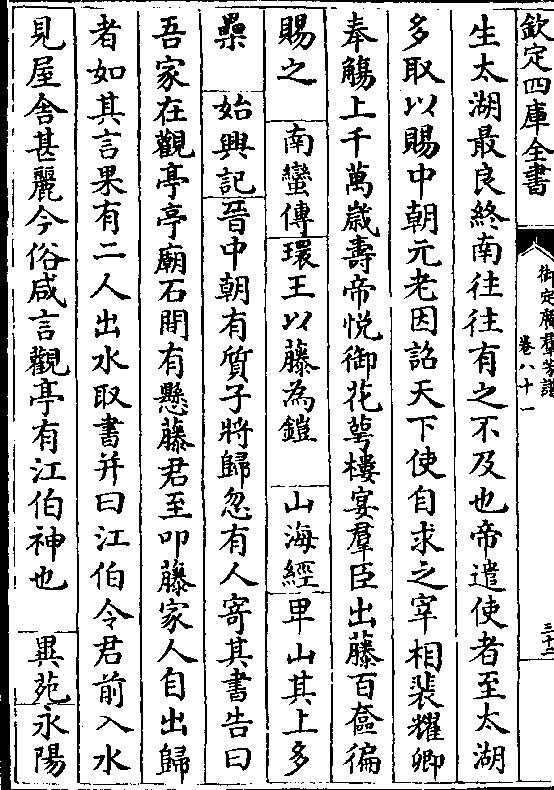 欽定四庫全書
御定廣羣芳譜
卷八十一
三十二
生太湖最良終南往往有之不及也帝遣使者至太湖
多取以賜中朝元老因詔天下使自求之宰相裴耀卿
奉觴上千萬歲壽帝悅御花萼樓宴羣臣出藤百奩徧
賜之　南蠻傳環王以藤為鎧　山海經畢山其上多
櫐　始興記晉中朝有質子將歸忽有人寄其書告曰
吾家在觀亭亭廟石間有懸藤君至叩藤家人自出歸
者如其言果有二人出水取書并曰江伯令君前入水
見屋舍甚麗今俗咸言觀亭有江伯神也　異苑永陽